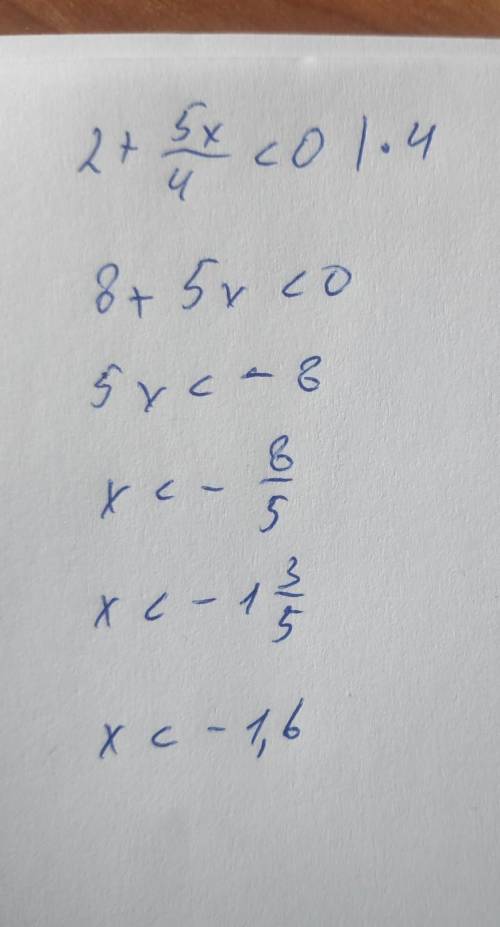 2 + 5x/4 < 0 | · 4
8 + 5x < 0
5x < - 8
x < - 8/5
x < - 1 3/5
x < - 1,6